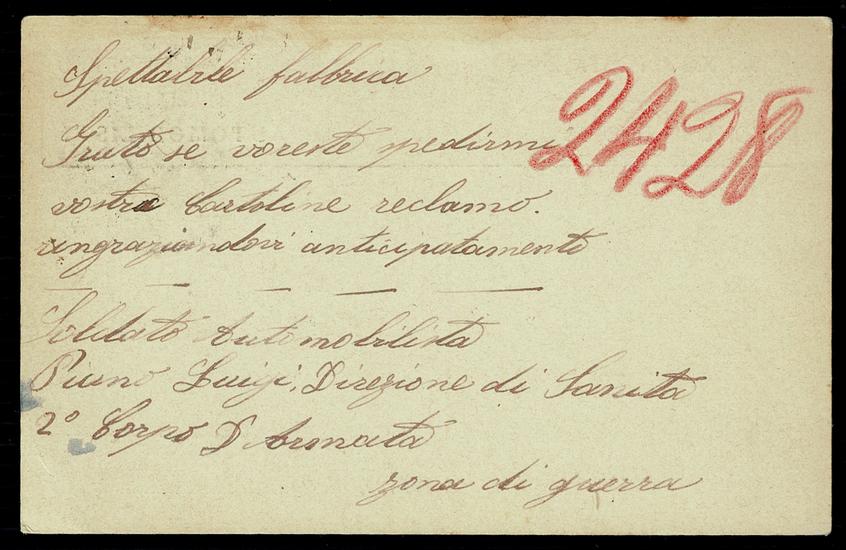 Spettabile fabbrica
2428
Gratto se voreste spedirmi
vostre Cartoline reclamo.
ringraziandovi anticipatamento
Soldato Automobilista
Luigi, Direzione di Sanità
2º Corpo D Armata
zona di guerra